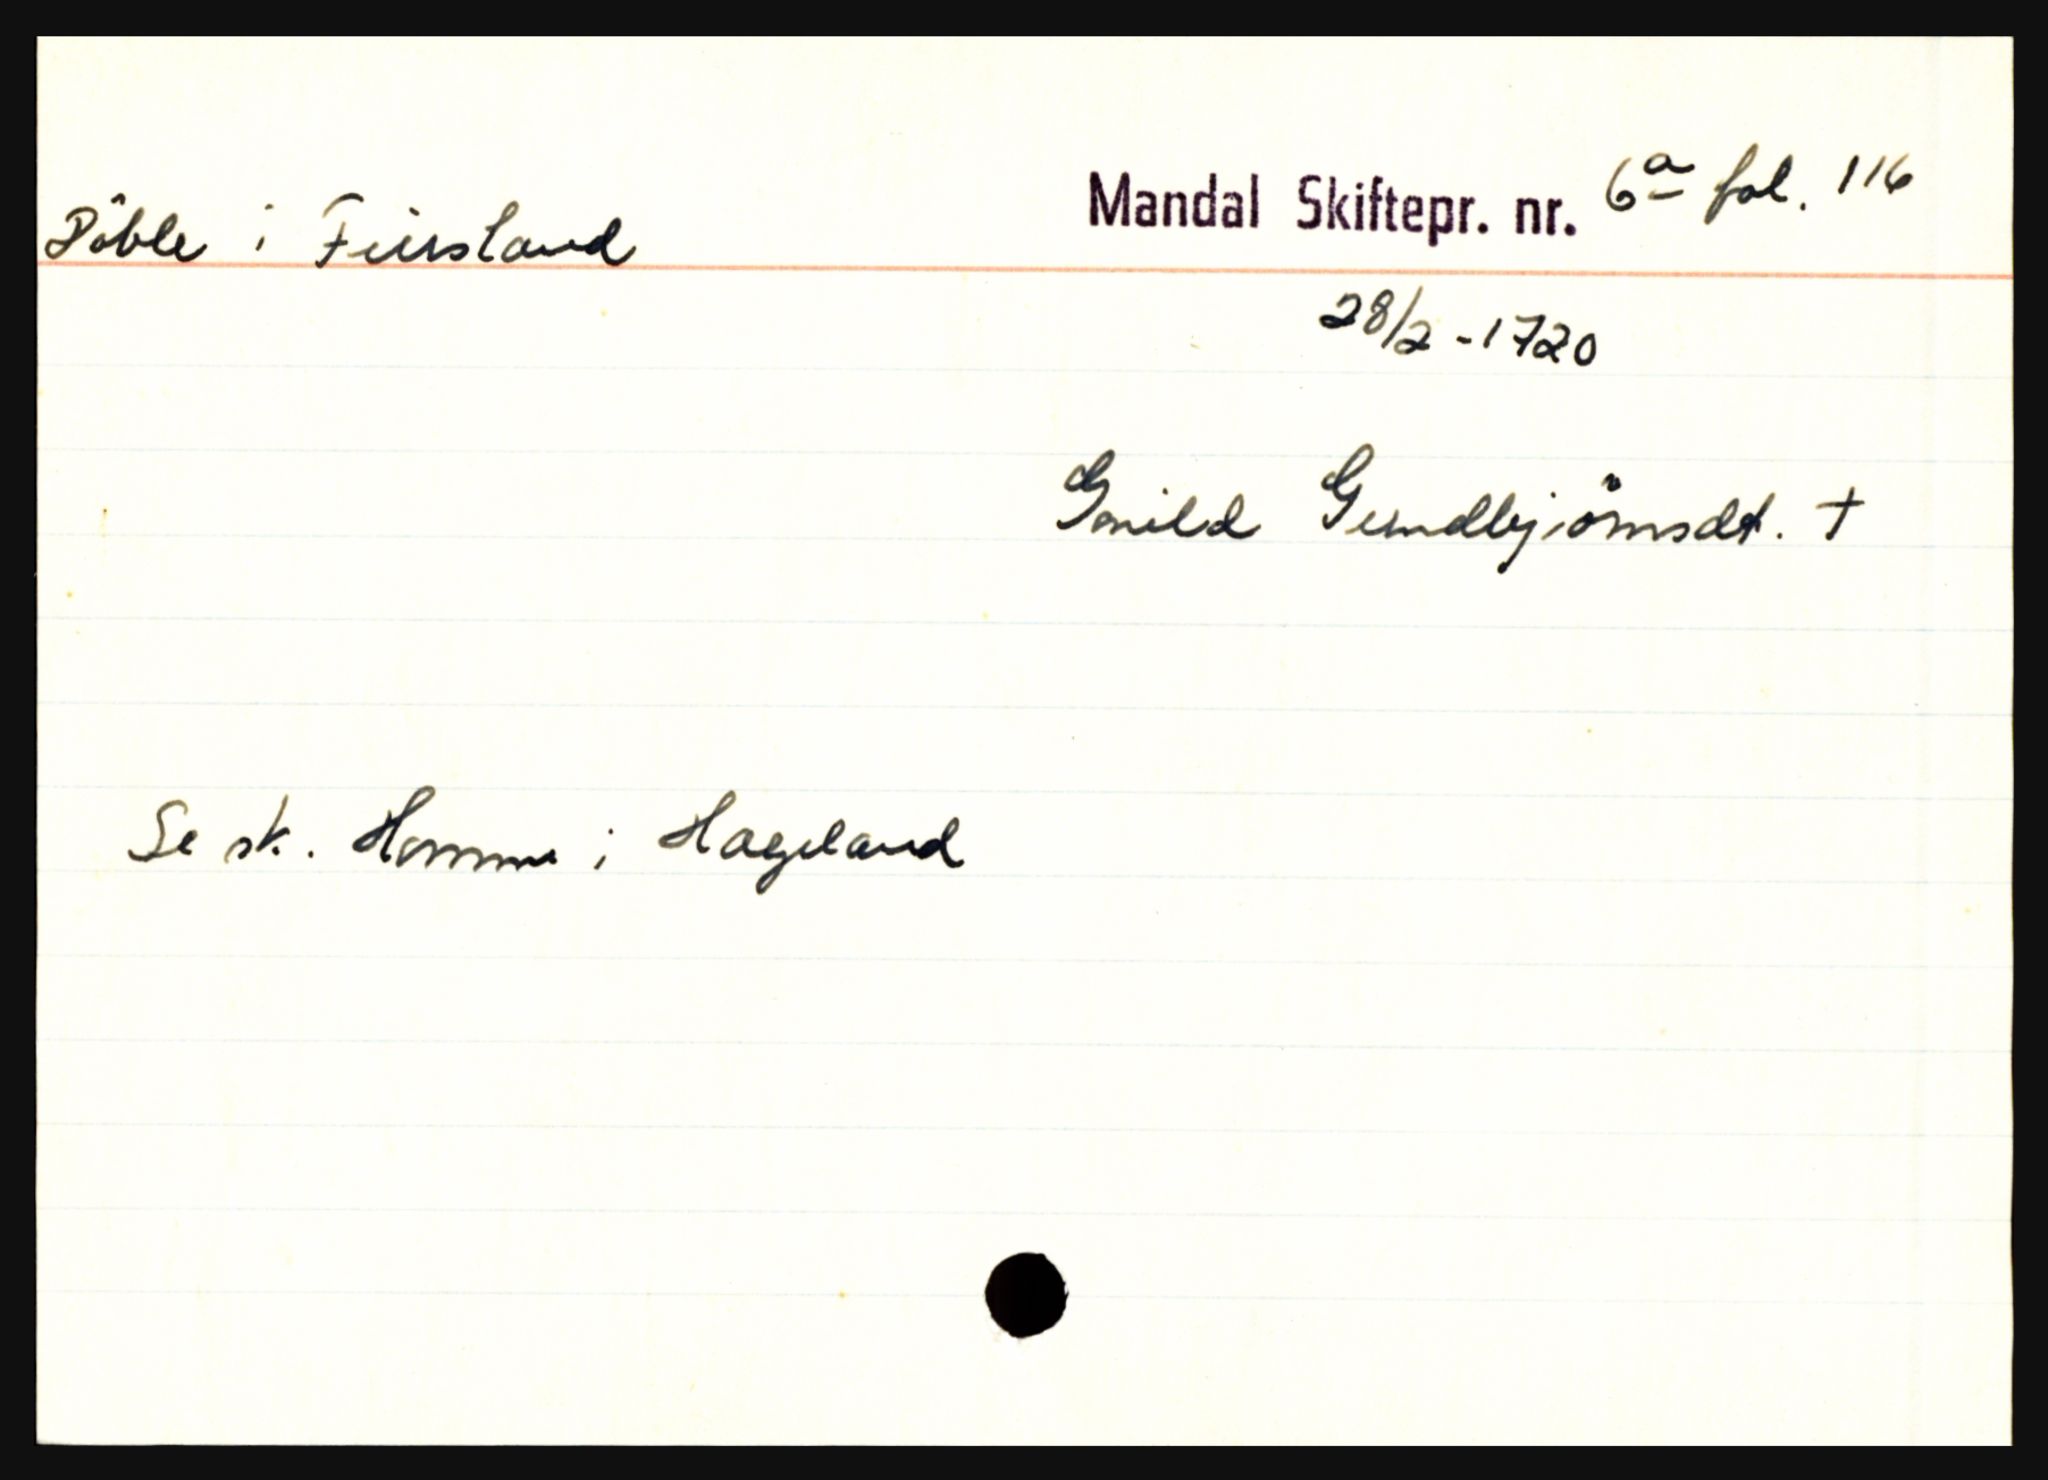 Döble i Finsland
Mandal Skiftepr. nr. 6a fol. 116
28/2 - 1720
Gonild Gundbjörnsdt. †
Se sk. Homme i Hægeland